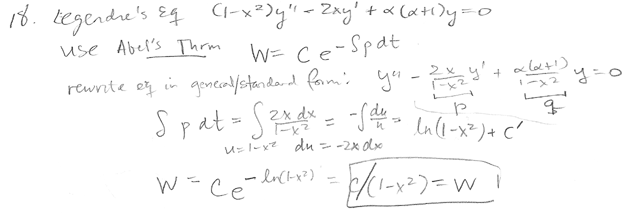 18. Legendre's Eq (1-x²)y" - 2xy' + α(α+1)y=0
use Abel's Thrm W= C e^-∫pdt
rewrite eq in general/standard form: y" - 2x/(1-x²) y' + α(α+1)/(1-x²) y=0
p q
∫ p dt = ∫ 2x dx/(1-x²) = -∫ du/u = ln(1-x²)+ C'
u=1-x² du = -2x dx
W = Ce^-ln(1-x²) = C/(1-x²) = W